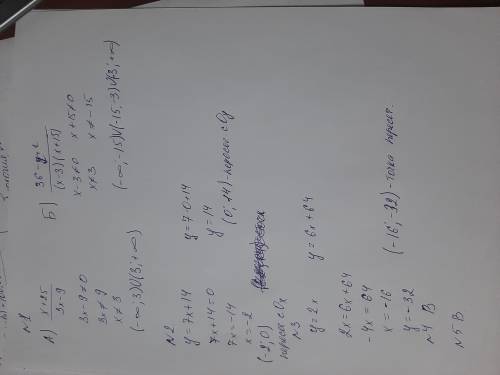 N1
А) x+25 / 3x-9
3x-9≠0
3x≠9
x≠3
(-∞;3)∪(3;+∞)
Б) / (x-3)(x+15)
x-3≠0 x+15≠0
x≠3 x≠-15
(-∞,-15)∪(-15,3)∪(3;+∞)
N2
y=7x+14
7x+14=0
7x=-14
x=-2
(-2;0)
пересек с Ox
y=7·0+14
y=14
(0;14)-пересек с Oy
N3
y=2x y=6x+64
2x=6x+64
-4x=64
x=-16
y=-32
(-16;-32)-точка пересеч.
N4 В
N5 В